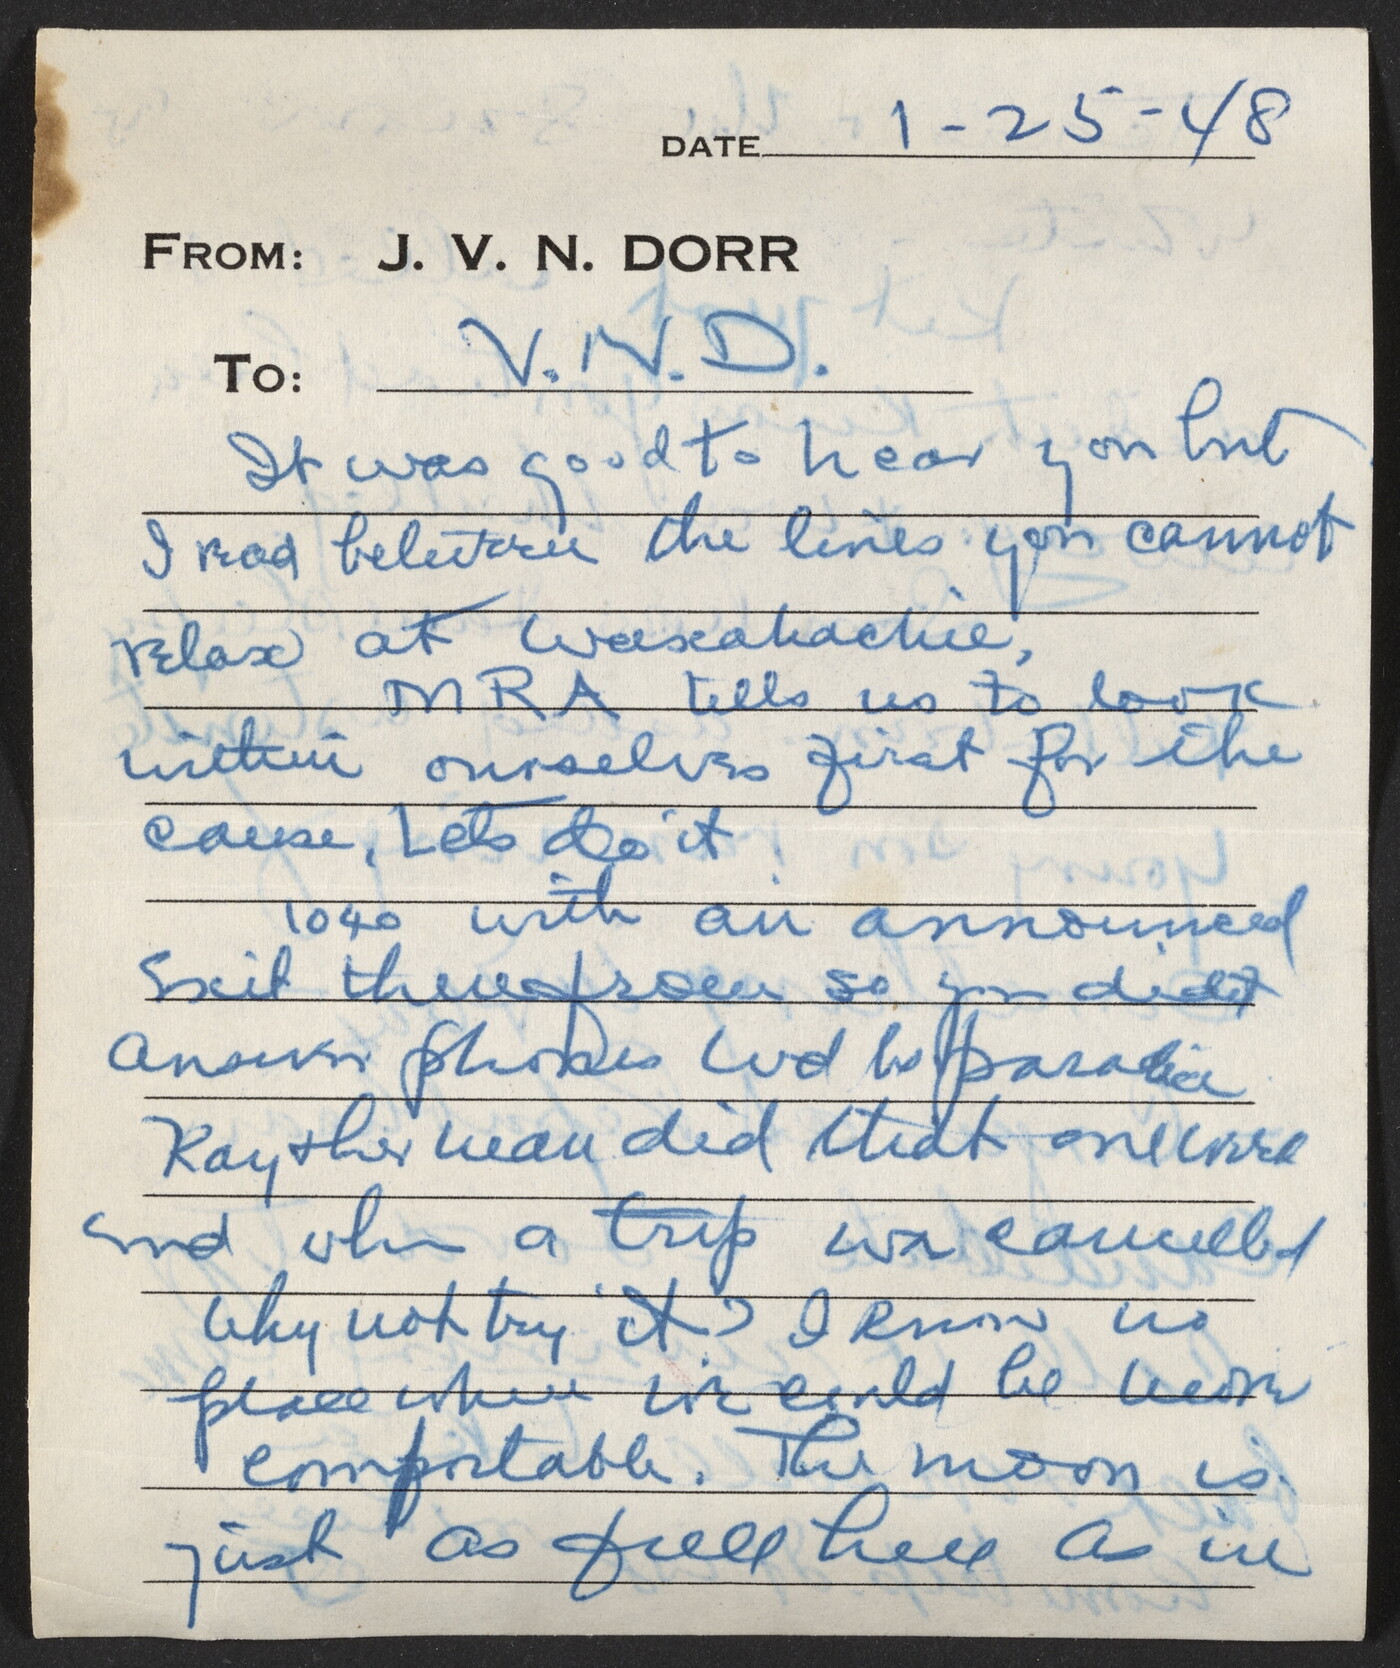 DATE 1-25-48
FROM: J. V. N. DORR
TO: V.N.D.
It was good to hear you but
I read between the lines you cannot
relax at Waxahachie,
MRA tells us to look
within ourselves first for the
cause, Lets do it
1040 with an announced
Exit therefrom so you didnt
answer phones wd be paradise
Ray & her man did that one week
end when a trip was cancelled
Why not try it? I know no
place where we could be more
comfortable. The moon is
just as full here as in